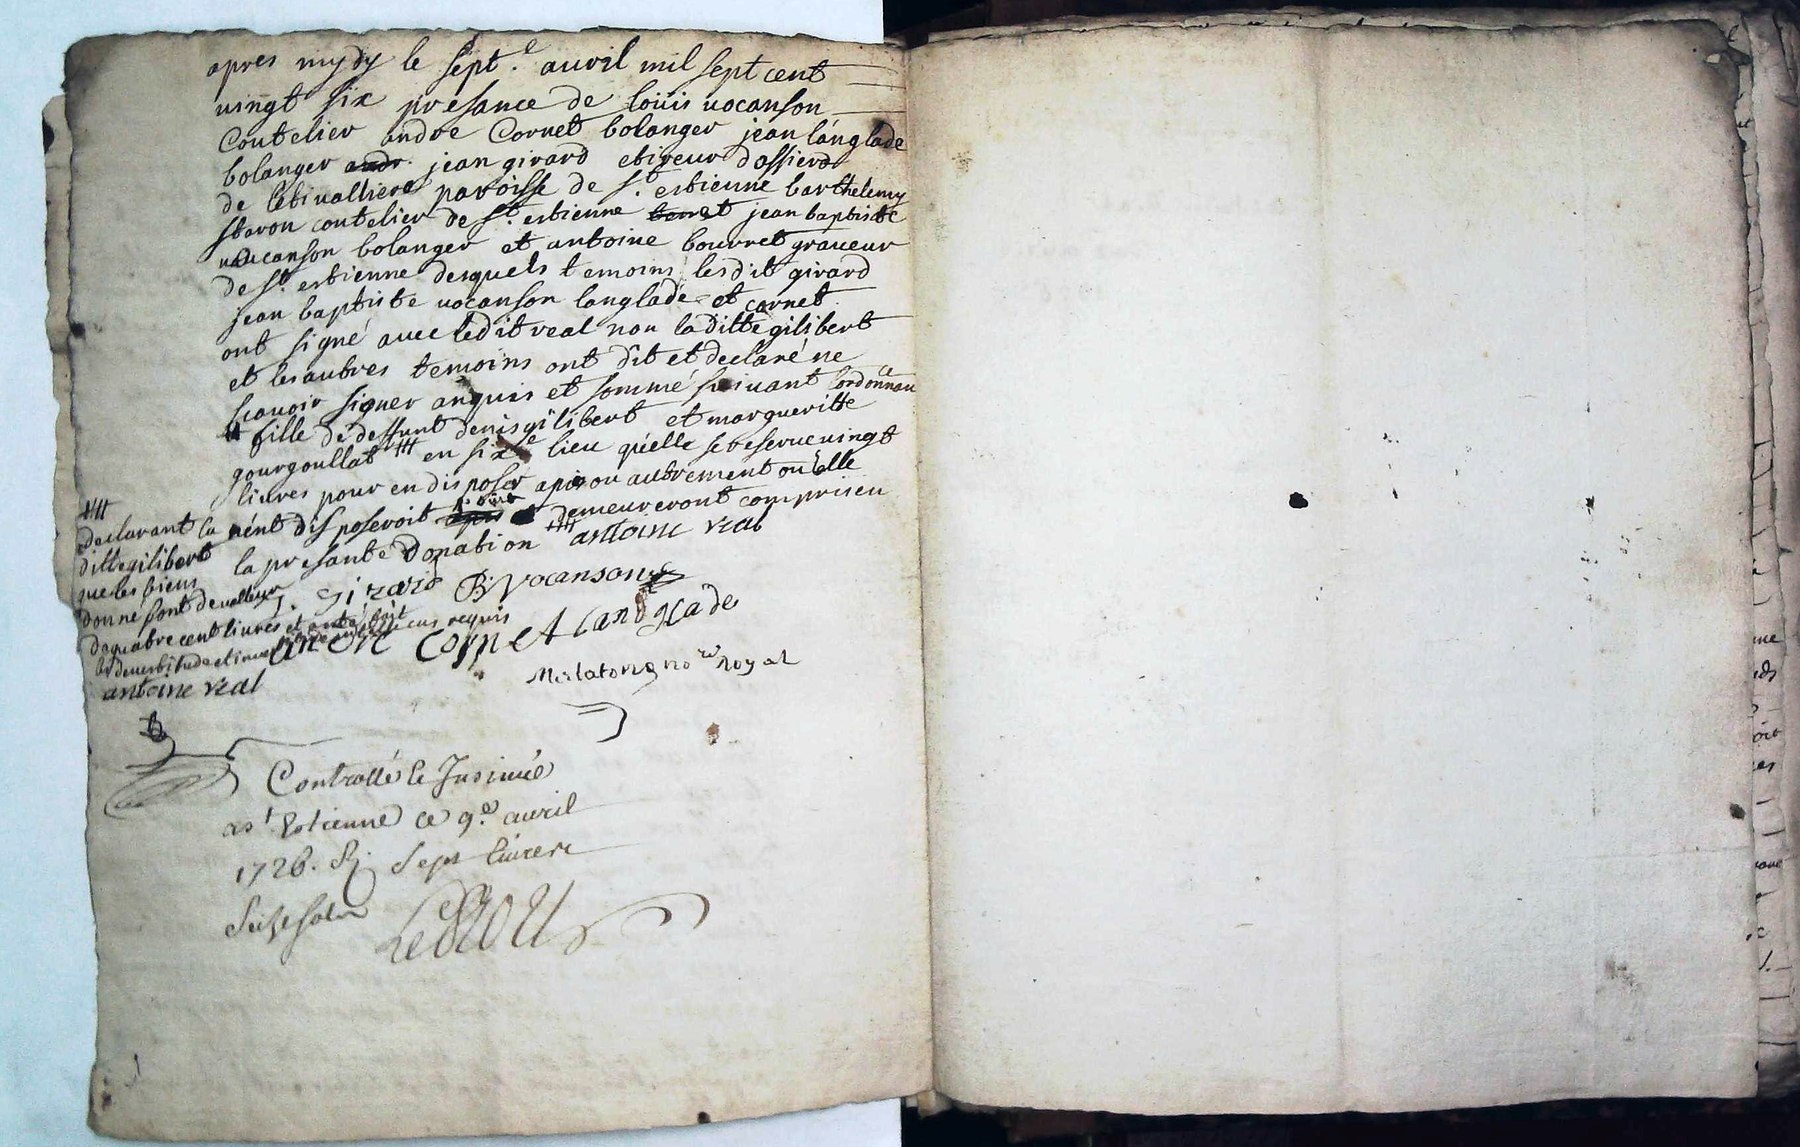 apres mydy le sept.e auvil mil sept cent
vingt six presance de loüis vocanson
Coutelier andre Cornet bolanger jean langlade
bolanger jean girard etireur dassierd
de paroisse de st. estienne barthelemy
staron coutelier de st. estienne jean baptiste
vaucanson bolanger et antoine bourret graueur
de st. estienne desquels temoins lesdit girard
jean baptiste vocanson langlade et cornet
ont signé auec ledit real non laditte gilibert
et les autres temoins ont dit et declaré ne
scauoir signer anquis et sommé suiuant lordonnance
fille de deffunt denis gilibert et margueritte
gourgoullat en sixe lieu quelle se reserue vingt
liures pour en disposer apres ou autrement ou elle
nent disposeroit demeureront compris en
la presante Donation antoine real
declarant la
ditte gilibert
que les biens
donné sont de valleur
de quatre cent liures
antoine real
J. girard B Vocanson
andre cornet langlade
no.re royal
Controllé & Insinué
a st Estienne ce 9.e auril
1726. R. sept liures
seize sols